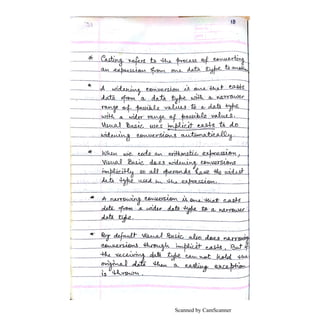 18
* Casting refers to the process of converting
an expression from one data type to another
* A widening conversion is one that casts
data from a data type with a narrower
range of possible values to a data type
with a wider range of possible values.
Visual Basic uses implicit casts to do
widening conversions automatically.
* When we code an arithmetic expression,
Visual Basic does widening conversions
implicitly so all operands have the widest
data type used in the expression.
* A narrowing conversion is one that casts
data from a wider data type to a narrower
data type.
* By default Visual Basic also does narrowing
conversions through implicit casts. But if
the receiving data type cannot hold the
original data then a casting exception
is thrown.
Scanned by CamScanner